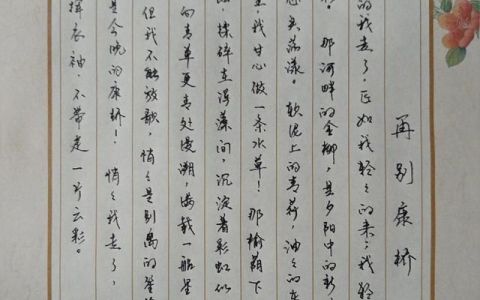 再别康桥
的我走了，正如我轻轻的来；我轻
那河畔的金柳，是夕阳中的新
荡漾。软泥上的青荇，油油的在
我甘心做一条水草！那榆荫下
揉碎在浮藻间，沉淀着彩虹似
的青草更青处漫溯，满载一船星
但我不能放歌，悄悄是别离的笙
是今晚的康桥！悄悄我走了，
挥衣袖，不带走一片云彩。